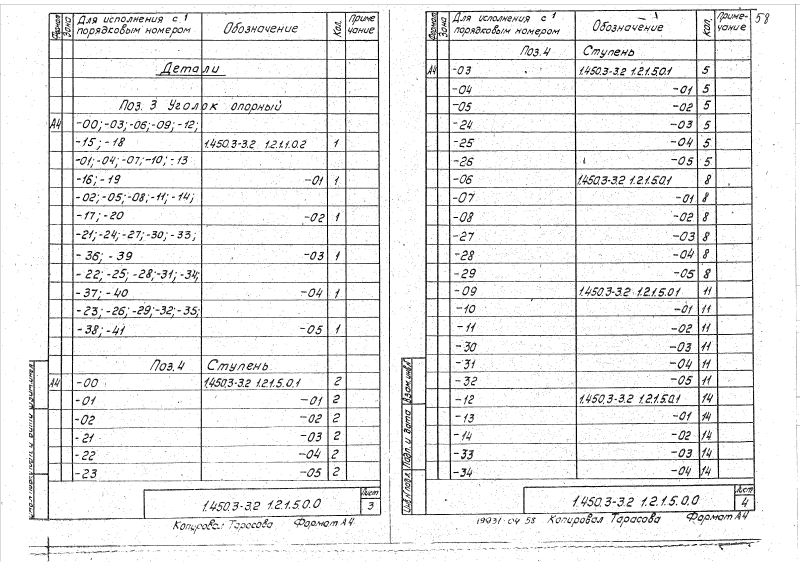 Формат Зона Для исполнения с порядковым номером Обозначение Кол. Приме чание
Детали
Поз. 3 Уголок опорный
А4 -00; -03; -06; -09; -12;
-15; -18 1.450.3-3.2 1.2.1.1.0.2 1
-01; -04; -07; -10; -13
-16; -19 -01 1
-02; -05; -08; -11; -14;
-17; -20 -02 1
-21; -24; -27; -30; -33;
-36; -39 -03 1
-22; -25; -28; -31; -34;
-37; -40 -04 1
-23; -26; -29; -32; -35;
-38; -41 -05 1
Поз.4 Ступень
А4 -00 1.450.3-3.2 1.2.1.5.0.1 2
-01 -01 2
-02 -02 2
-21 -03 2
-22 -04 2
-23 -05 2
1.450.3-3.2 1.2.1.5.0.0 Лист 3
Копировал Тарасова Формат А4
58
Формат Зона Для исполнения с порядковым номером Обозначение Кол. Приме-чание
Поз.4 Ступень
А4 -03 1.450.3-3.2 1.2.1.5.0.1 5
-04 -01 5
-05 -02 5
-24 -03 5
-25 -04 5
-26 -05 5
-06 1.450.3-3.2 1.2.1.5.0.1 8
-07 -01 8
-08 -02 8
-27 -03 8
-28 -04 8
-29 -05 8
-09 1.450.3-3.2 1.2.1.5.0.1 11
-10 -01 11
-11 -02 11
-30 -03 11
-31 -04 11
-32 -05 11
-12 1.450.3-3.2 1.2.1.5.0.1 14
-13 -01 14
-14 -02 14
-33 -03 14
-34 -04 14
Инв.N подл. Подп. и дата Взам.инв.N
1.450.3-3.2 1.2.1.5.0.0 Лист 4
19931-04 58 Копировал Тарасова Формат А4